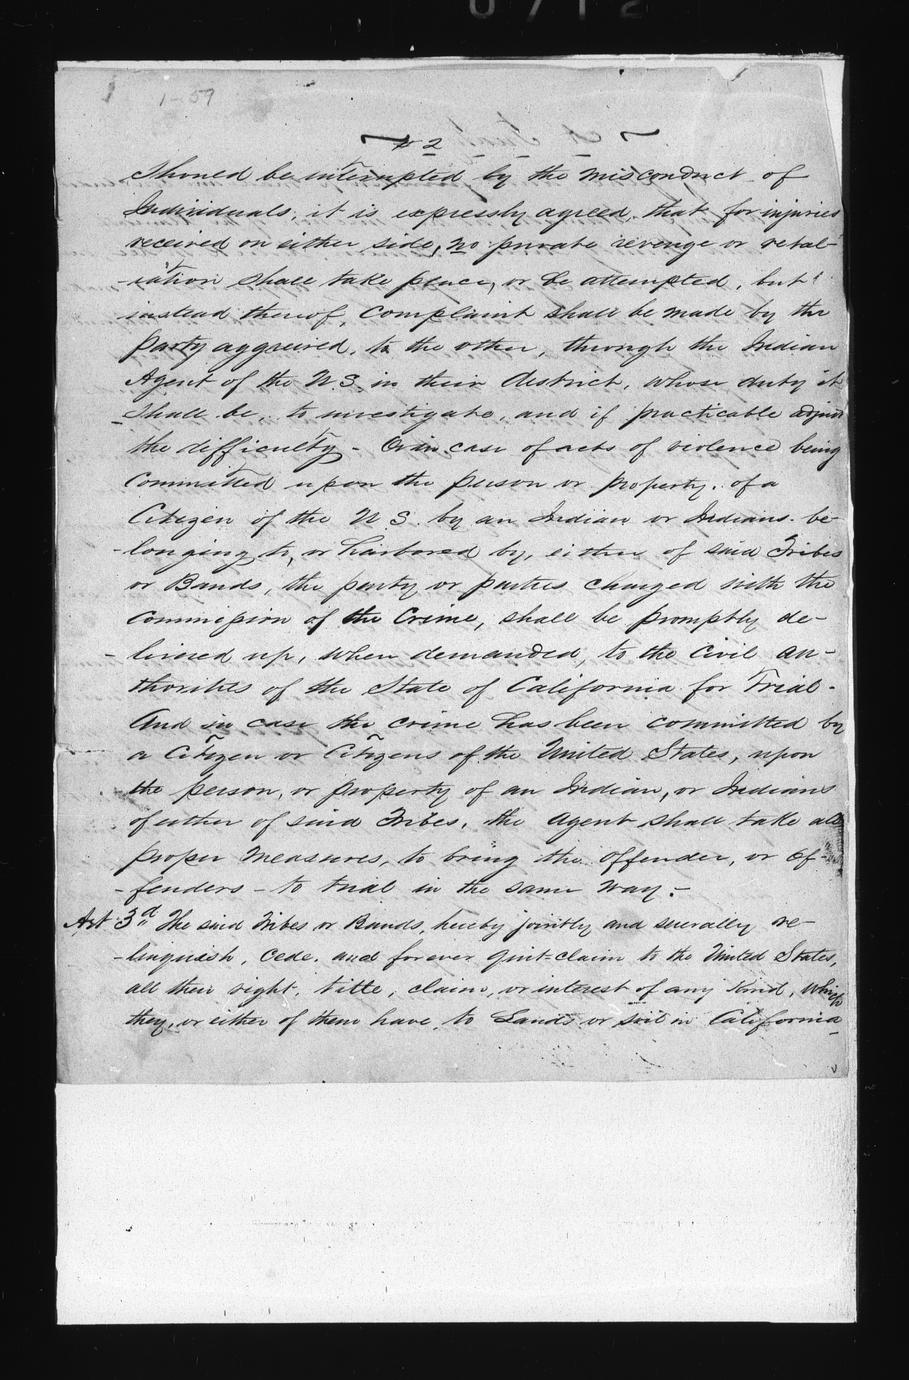 0712
1-59
# 2
Should be interrupted by the misconduct of
Individuals, it is expressly agreed, that for injuries
received on either side, no private revenge or retal-
-iation shall take place, or be attempted, but
instead thereof, Complaint shall be made by the
Party aggreived, to the other, through the Indian
Agent of the U.S. in their District, whose duty it
shall be, to investigate, and if practicable adjust
the difficulty - Or in case of acts of violence being
Committed upon the person or property, of a
Citizen of the U S. by an Indian or Indians be-
-longing to, or harbored by, either of said Tribes
or Bands, the party or parties charged with the
Commission of the Crime, shall be promptly de-
-livered up, when demanded, to the Civil au-
-thorities of the State of California for Trial -
And in case the crime has been committed by
a Citizen or Citizens of the United States, upon
the person, or property of an Indian, or Indians
of either of said Tribes, the agent shall take all
proper measures, to bring the offender, or of-
-fenders - to trial in the same way. -
Art 3d The said Tribes or Bands, hereby jointly and severally re-
-linquish, Cede, and forever quit=claim to the United States,
all their right, title, claim, or interest of any kind, which
they, or either of them have to Lands or soil in California -